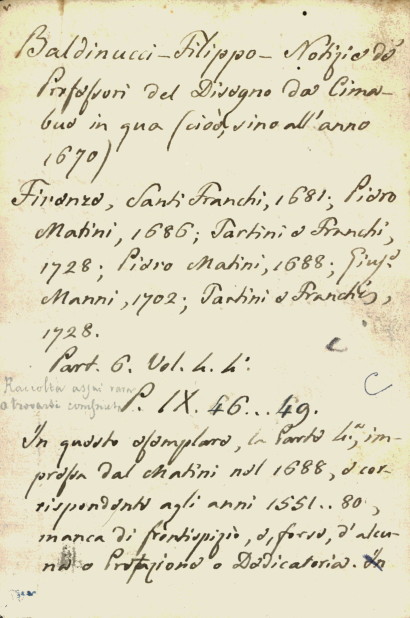 Baldinucci – Filippo – Notizie de'
Professori del Disegno da Cima-
bue in qua (cioè, sino all'anno
1670)
Firenze, Santi Franchi, 1681; Piero
Matini, 1686; Tartini e Franchi,
1728; Piero Matini, 1688; Gius.e
Manni, 1702; Tartini e Franchi,
1728.
Part. 6. Vol. 4. 4.°
Raccolta assai rara
a trovarsi compiuta
P. IX. 46...49.
In questo esemplare, la Parte 4.a, im-
pressa dal Matini nel 1688, e cor-
rispondente agli anni 1551..80,
manca di frontispizio, e, forse, d'alcu-
na o Prefazione o Dedicatoria. In